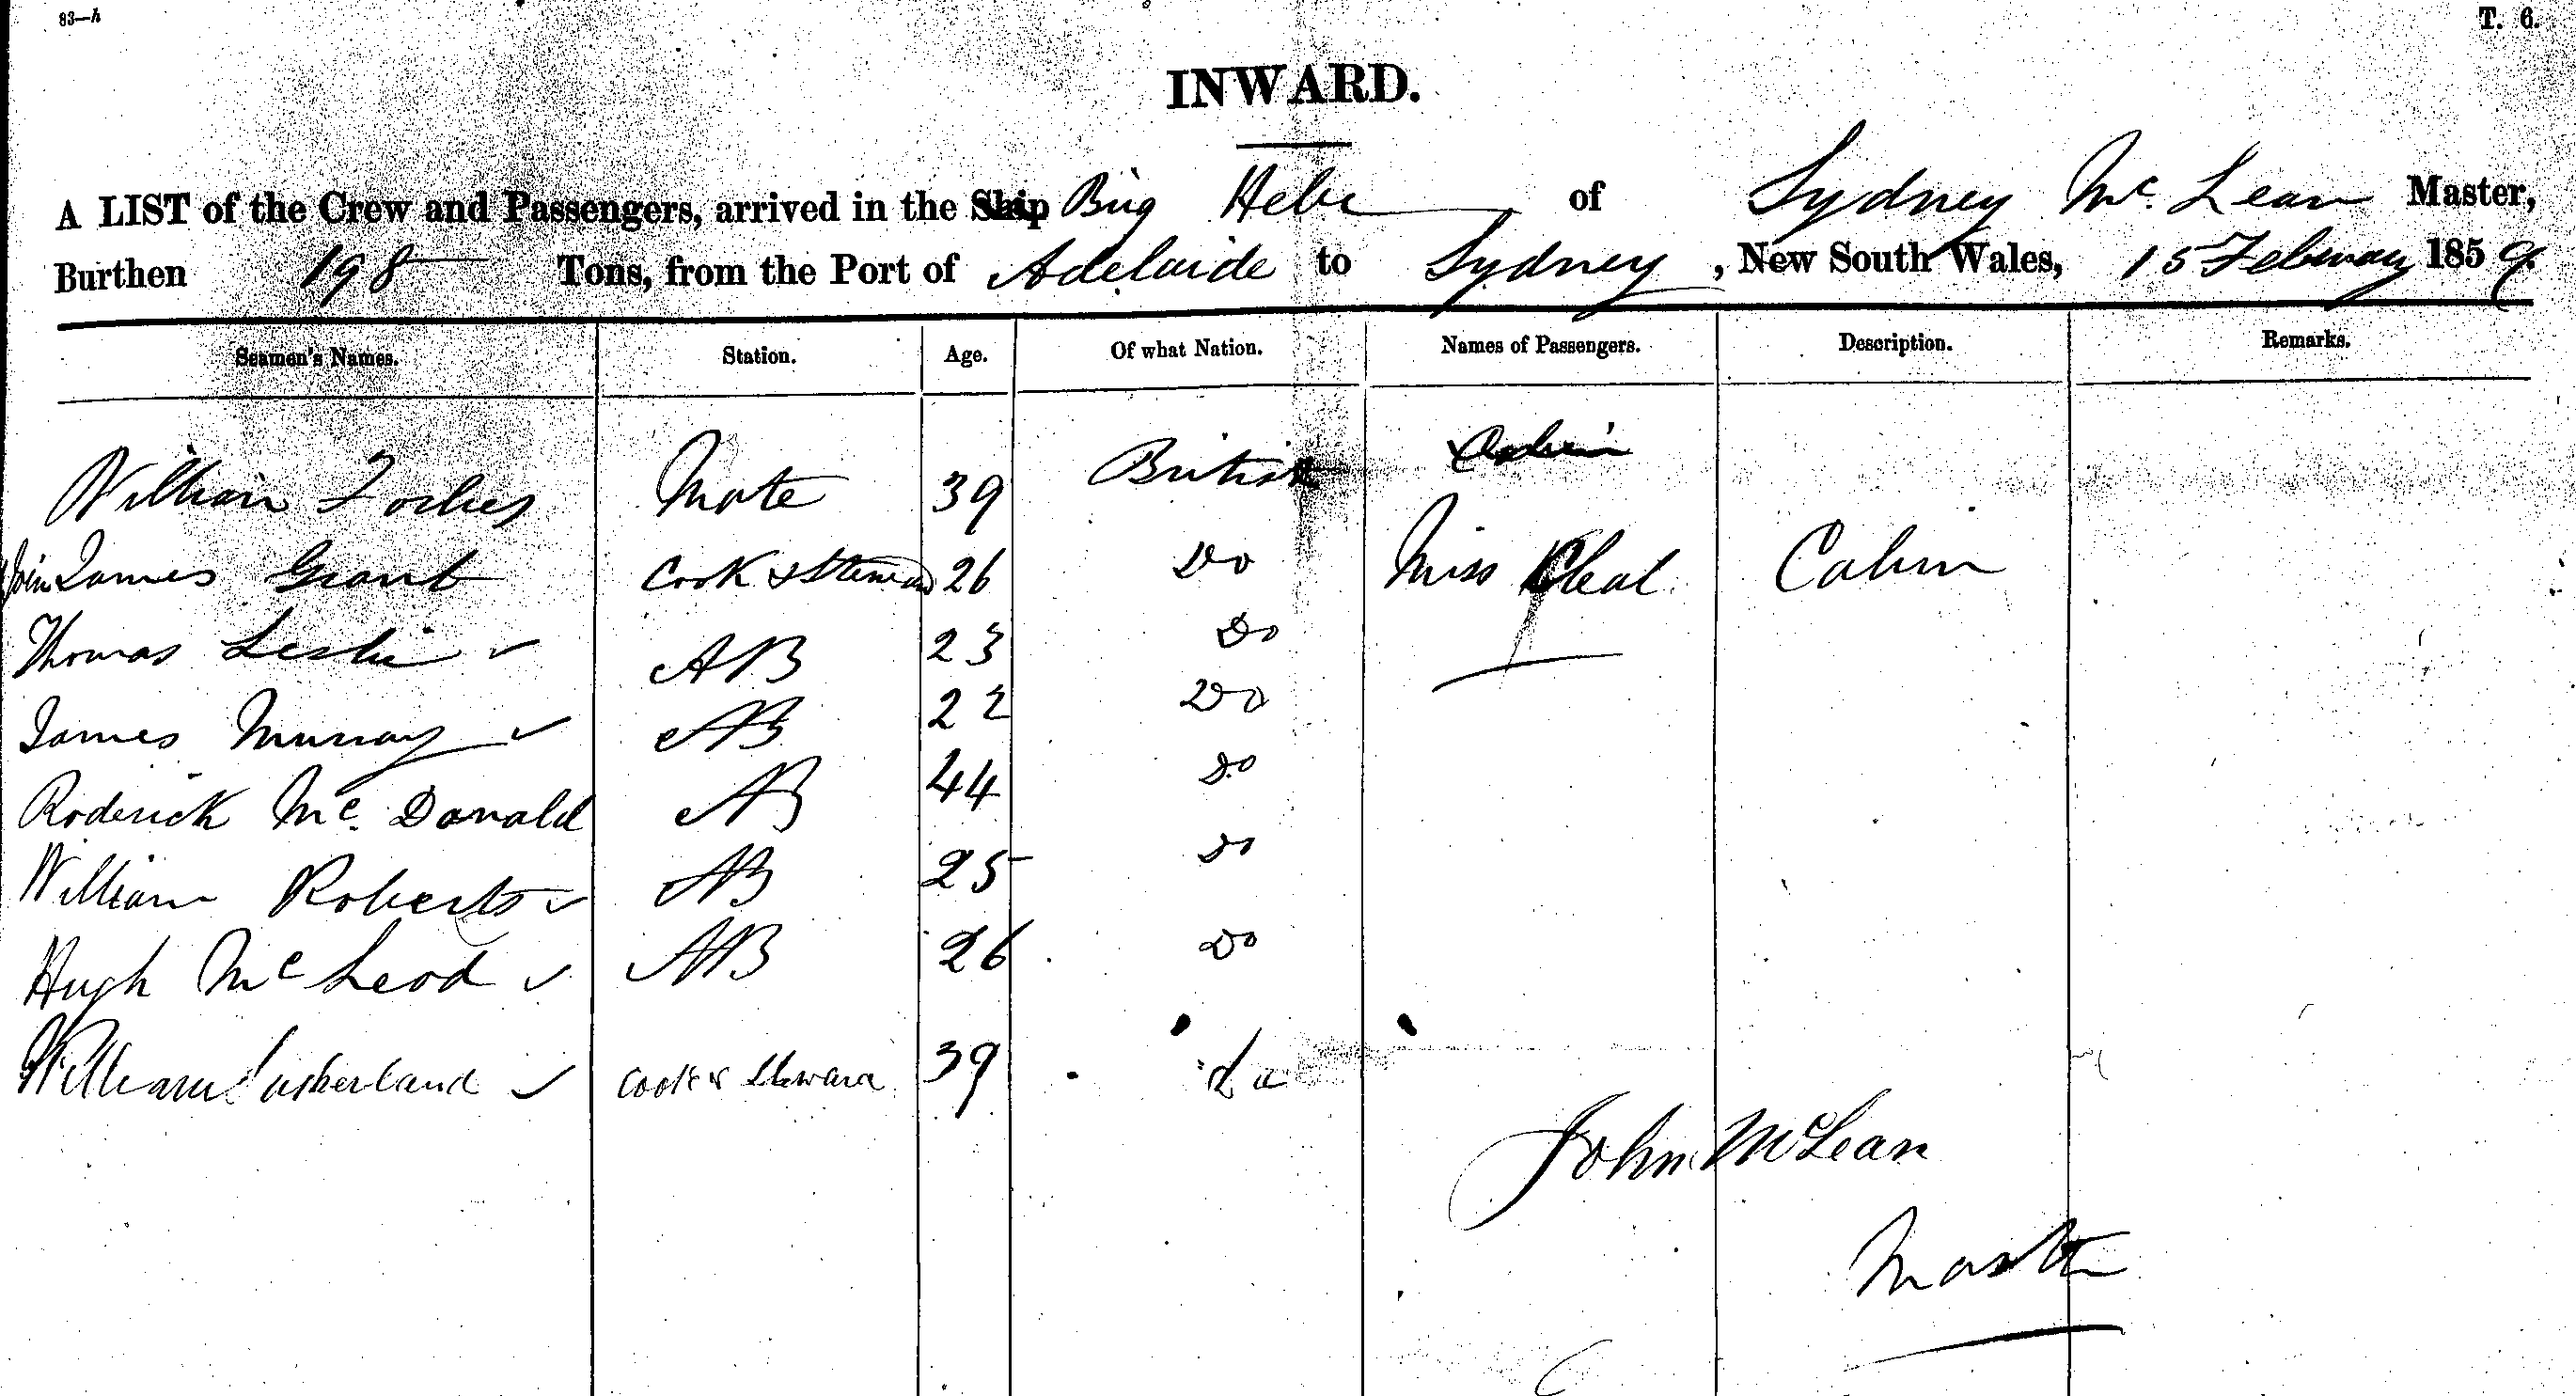 83—h
T. 6.
INWARD.
A LIST of the Crew and Passengers, arrived in the Ship Brig Hebe of Sydney Mc. Lean Master,
Burthen 198 Tons, from the Port of Adelaide to Sydney, New South Wales, 15 February 1859.
Seamen's Names. Station. Age. Of what Nation. Names of Passengers. Description. Remarks.
William Forbes Mate 39 British
James Grant Cook & Steward 26 Do Miss Cabin
Thomas Leslie AB 23 Do
James Murray AB 22 Do
Roderick Mc. Donald AB 44 Do
William Roberts AB 25 Do
Hugh Mc Leod AB 26 Do
William Sutherland Cook & Steward 39 do
John McLean
Master